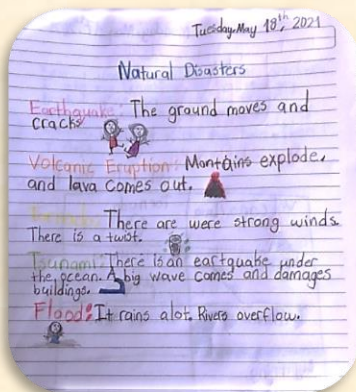 Tuesday, May 18th, 2021
Natural Disasters
Earthquake: The ground moves and
cracks
Volcanic Eruption: Montains explode,
and lava comes out.
There are were strong winds
There is a twist.
Tsunami: There is an eartquake under
the ocean. A big wave comes and damages
buildings.
Flood: It rains alot. Rivers overflow.